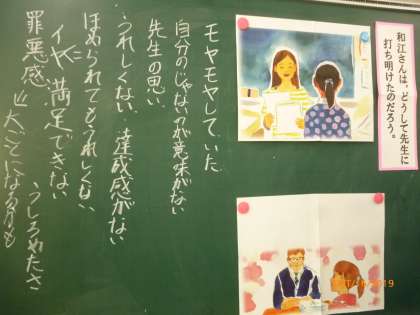 和江さんは、どうして先生に
打ち明けたのだろう。
モヤモヤしていた
自分のじゃないのが意味がない
先生の思い
うれしくない、達成感がない
ほめられてもうれしくない
イヤに
満足できない
うしろめたさ
罪悪感
大ごとになるかも